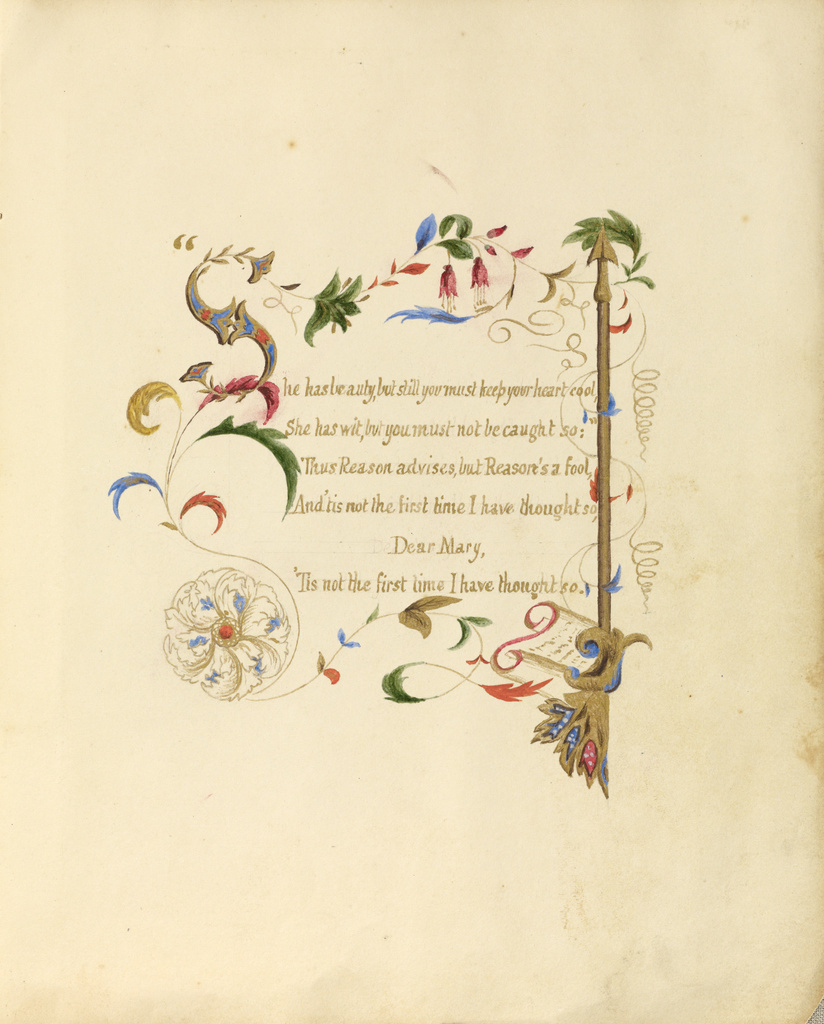 “She has beauty, but still you must keep your heart cool,
She has wit, but you must not be caught so:”
Thus Reason advises, but Reason's a fool,
And 'tis not the first time I have thought so,
Dear Mary,
'Tis not the first time I have thought so.